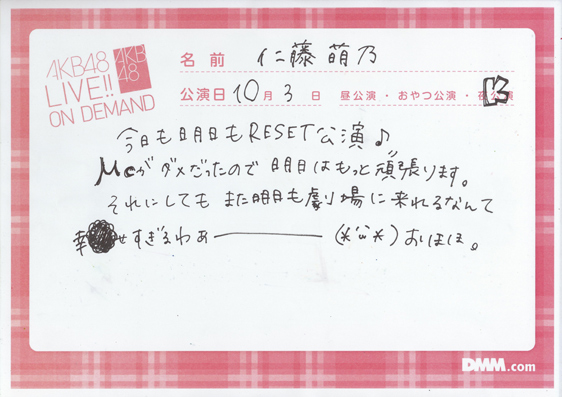 AKB48
LIVE!!
ON DEMAND
AKB
48
名前 仁藤萌乃
公演日 10月3日 昼公演・おやつ公演・夜公演
今日も明日もRESET公演♪
MCがダメだったので明日はもっと頑張ります。
それにしても また明日も劇場に来れるなんて
幸せすぎるわぁ――― (*´ω`*)おほほ。
DMM.com